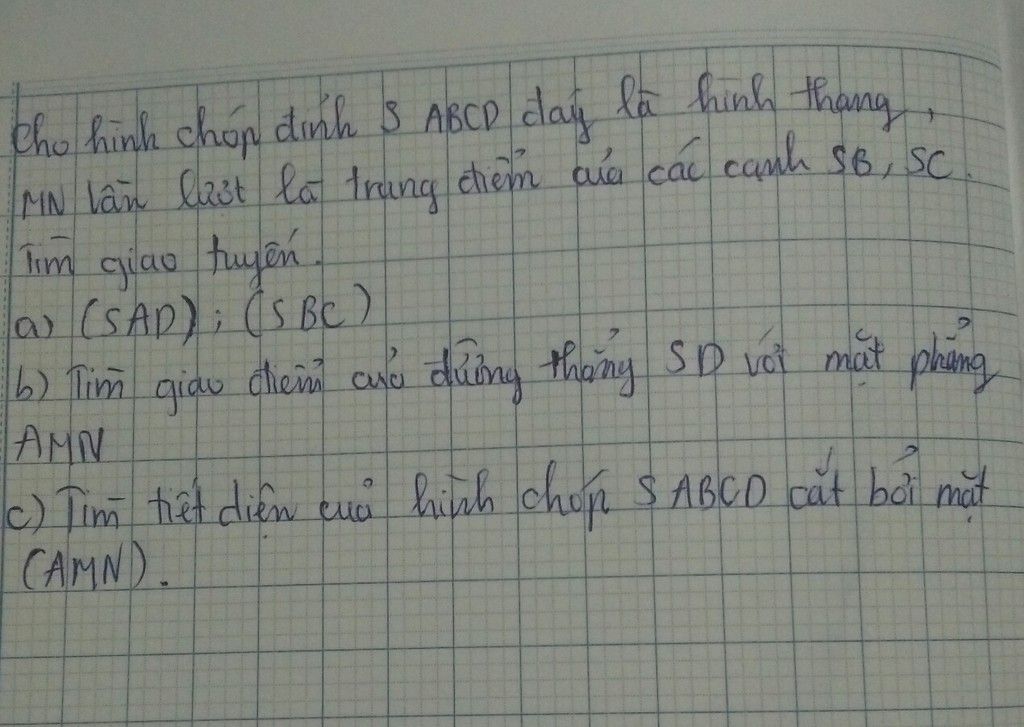 Cho hình chóp đỉnh S ABCD đáy là hình thang,
MN lần lượt là trung điểm của các cạnh SB, SC.
Tìm giao tuyến.
a) (SAD); (SBC)
b) Tìm giao điểm của đường thẳng SD với mặt phẳng
AMN
c) Tìm tiết diện của hình chóp S ABCD cắt bởi mặt
(AMN).